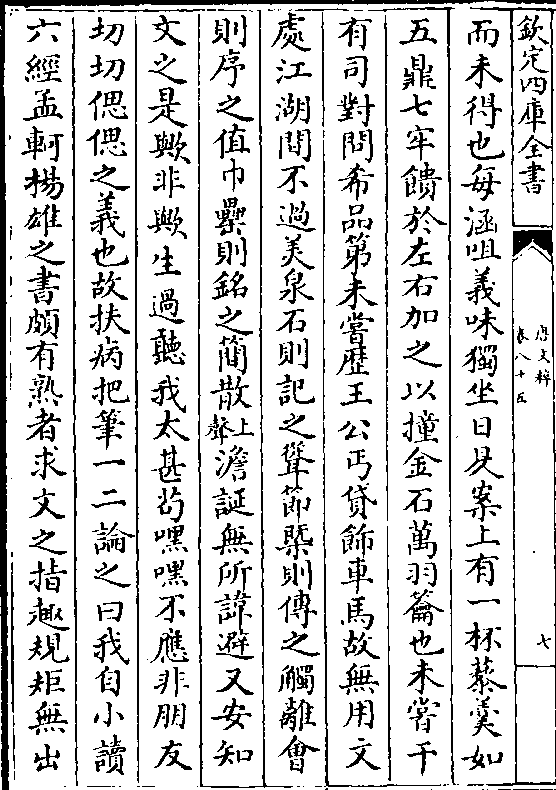 欽定四庫全書
唐文粹
卷八十五
七
而未得也每涵咀義味獨坐日昃案上有一杯藜羹如
五鼎七牢饋於左右加之以撞金石萬羽籥也未嘗干
有司對問希品第未嘗歷王公丐貸飾車馬故無用文
處江湖間不過美泉石則記之聳節槩則傳之觴離會
則序之值巾罍則銘之簡散上聲澹誕無所諱避又安知
文之是歟非歟生過聽我太甚苟嘿嘿不應非朋友
切切偲偲之義也故扶病把筆一二論之曰我自小讀
六經孟軻楊雄之書頗有熟者求文之指趣規矩無出